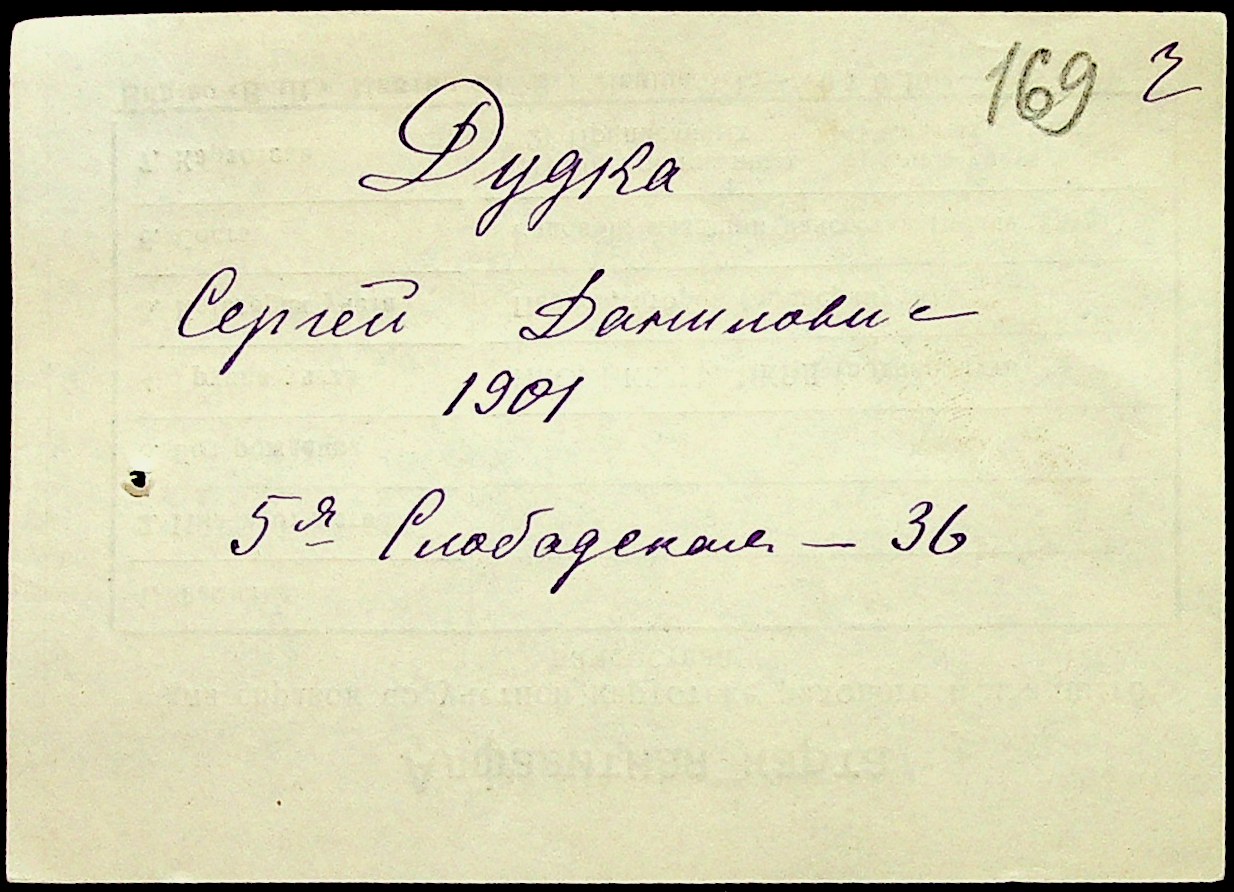 169 г
Дудка
Сергей Данилович
1901
5я Слободская – 36